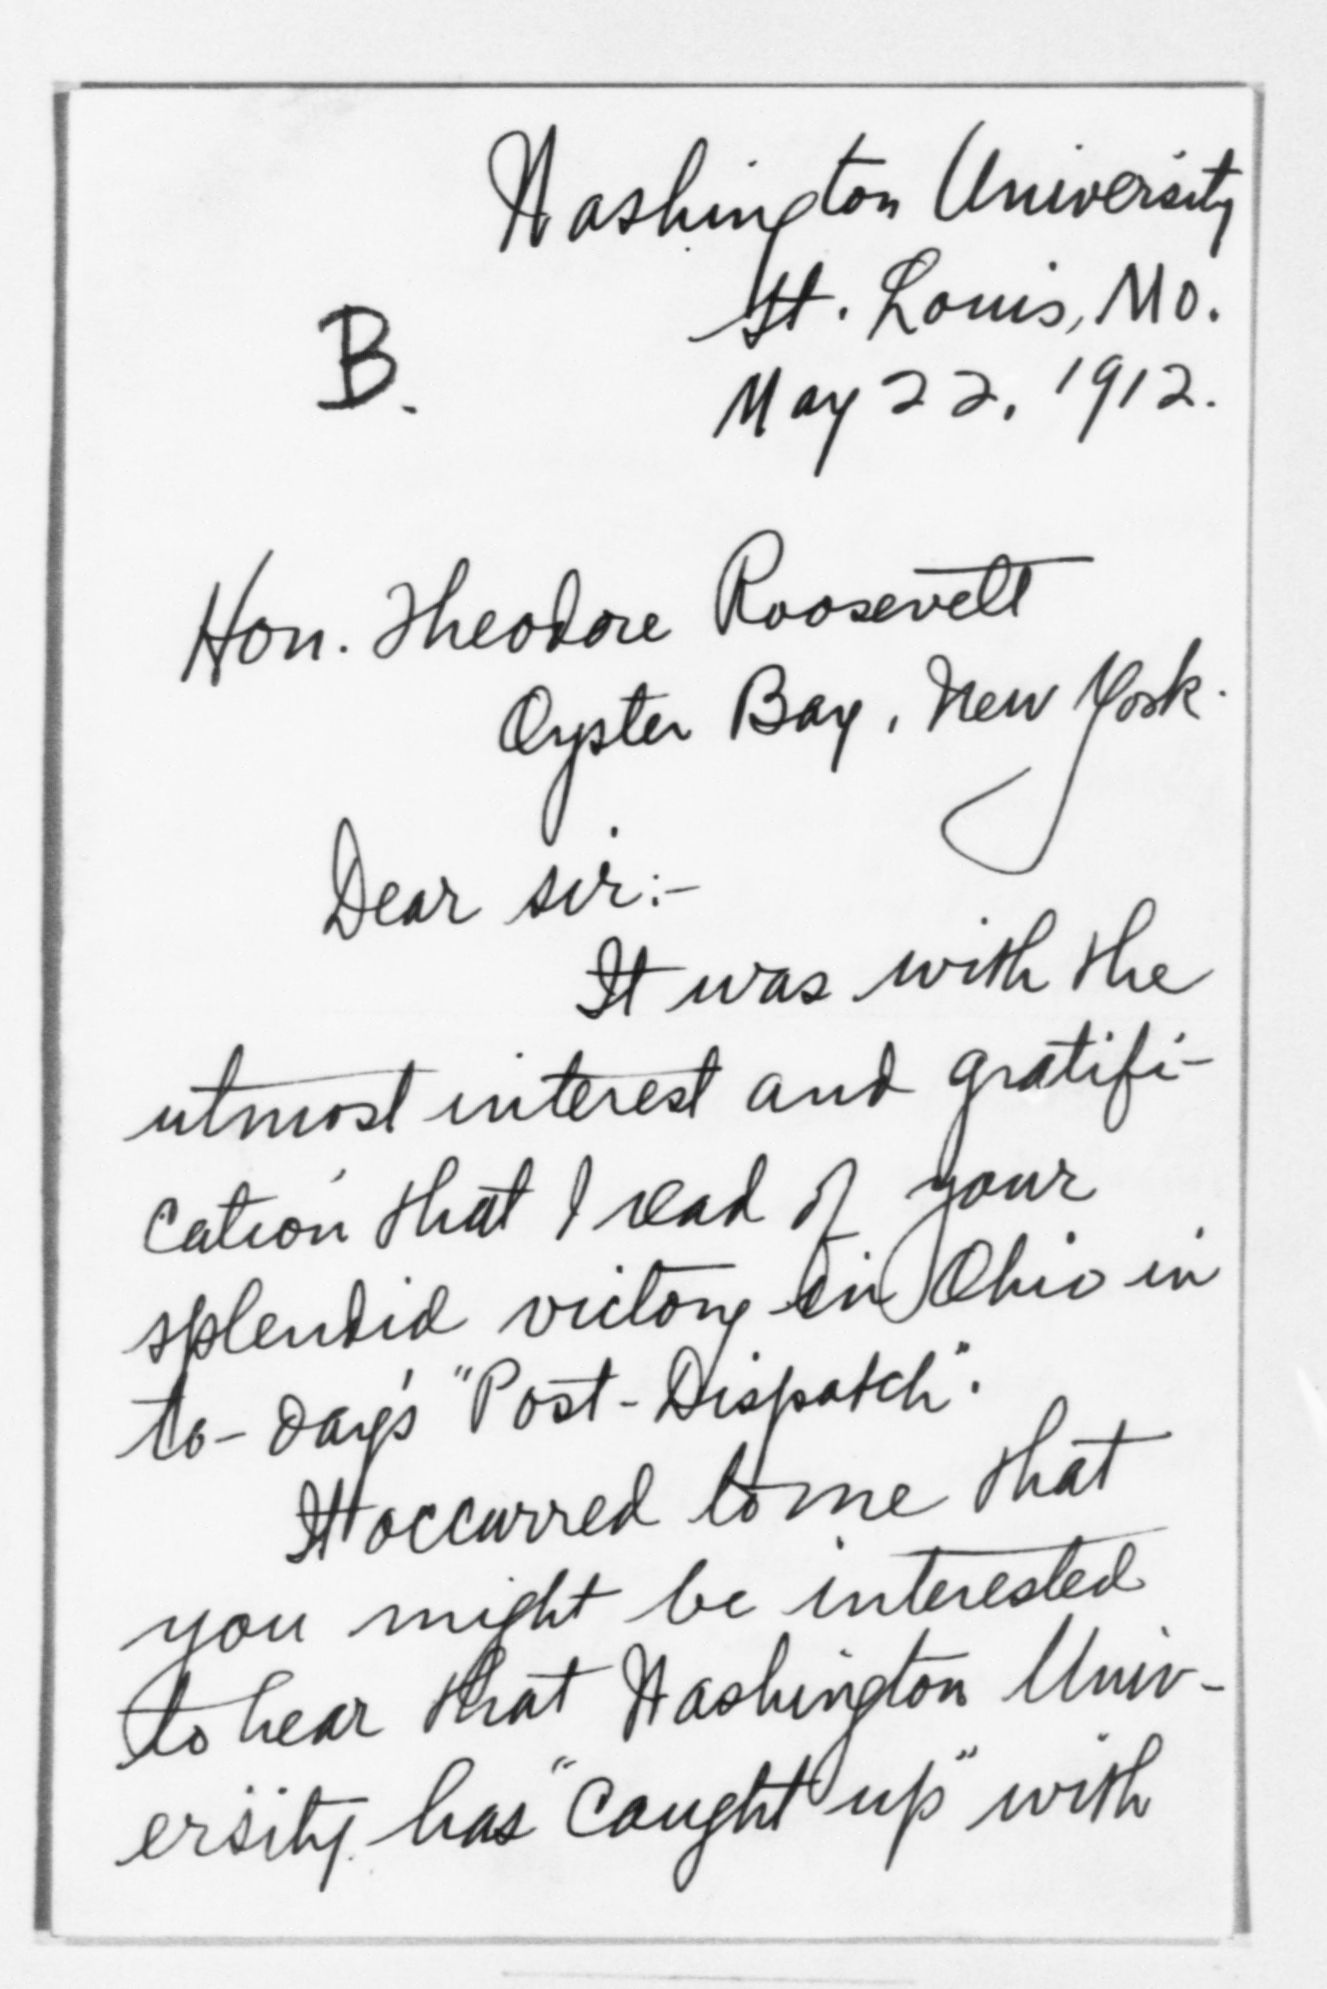 Washington University
St. Louis, Mo.
B.
May 22, 1912.
Hon. Theodore Roosevelt
Oyster Bay, New York.
Dear sir:-
It was with the
utmost interest and gratifi-
cation that I read of your
splendid victory in Ohio in
to-day's "Post-Dispatch".
It occurred to me that
you might be interested
to hear that Washington Univ-
ersity has "caught up" with